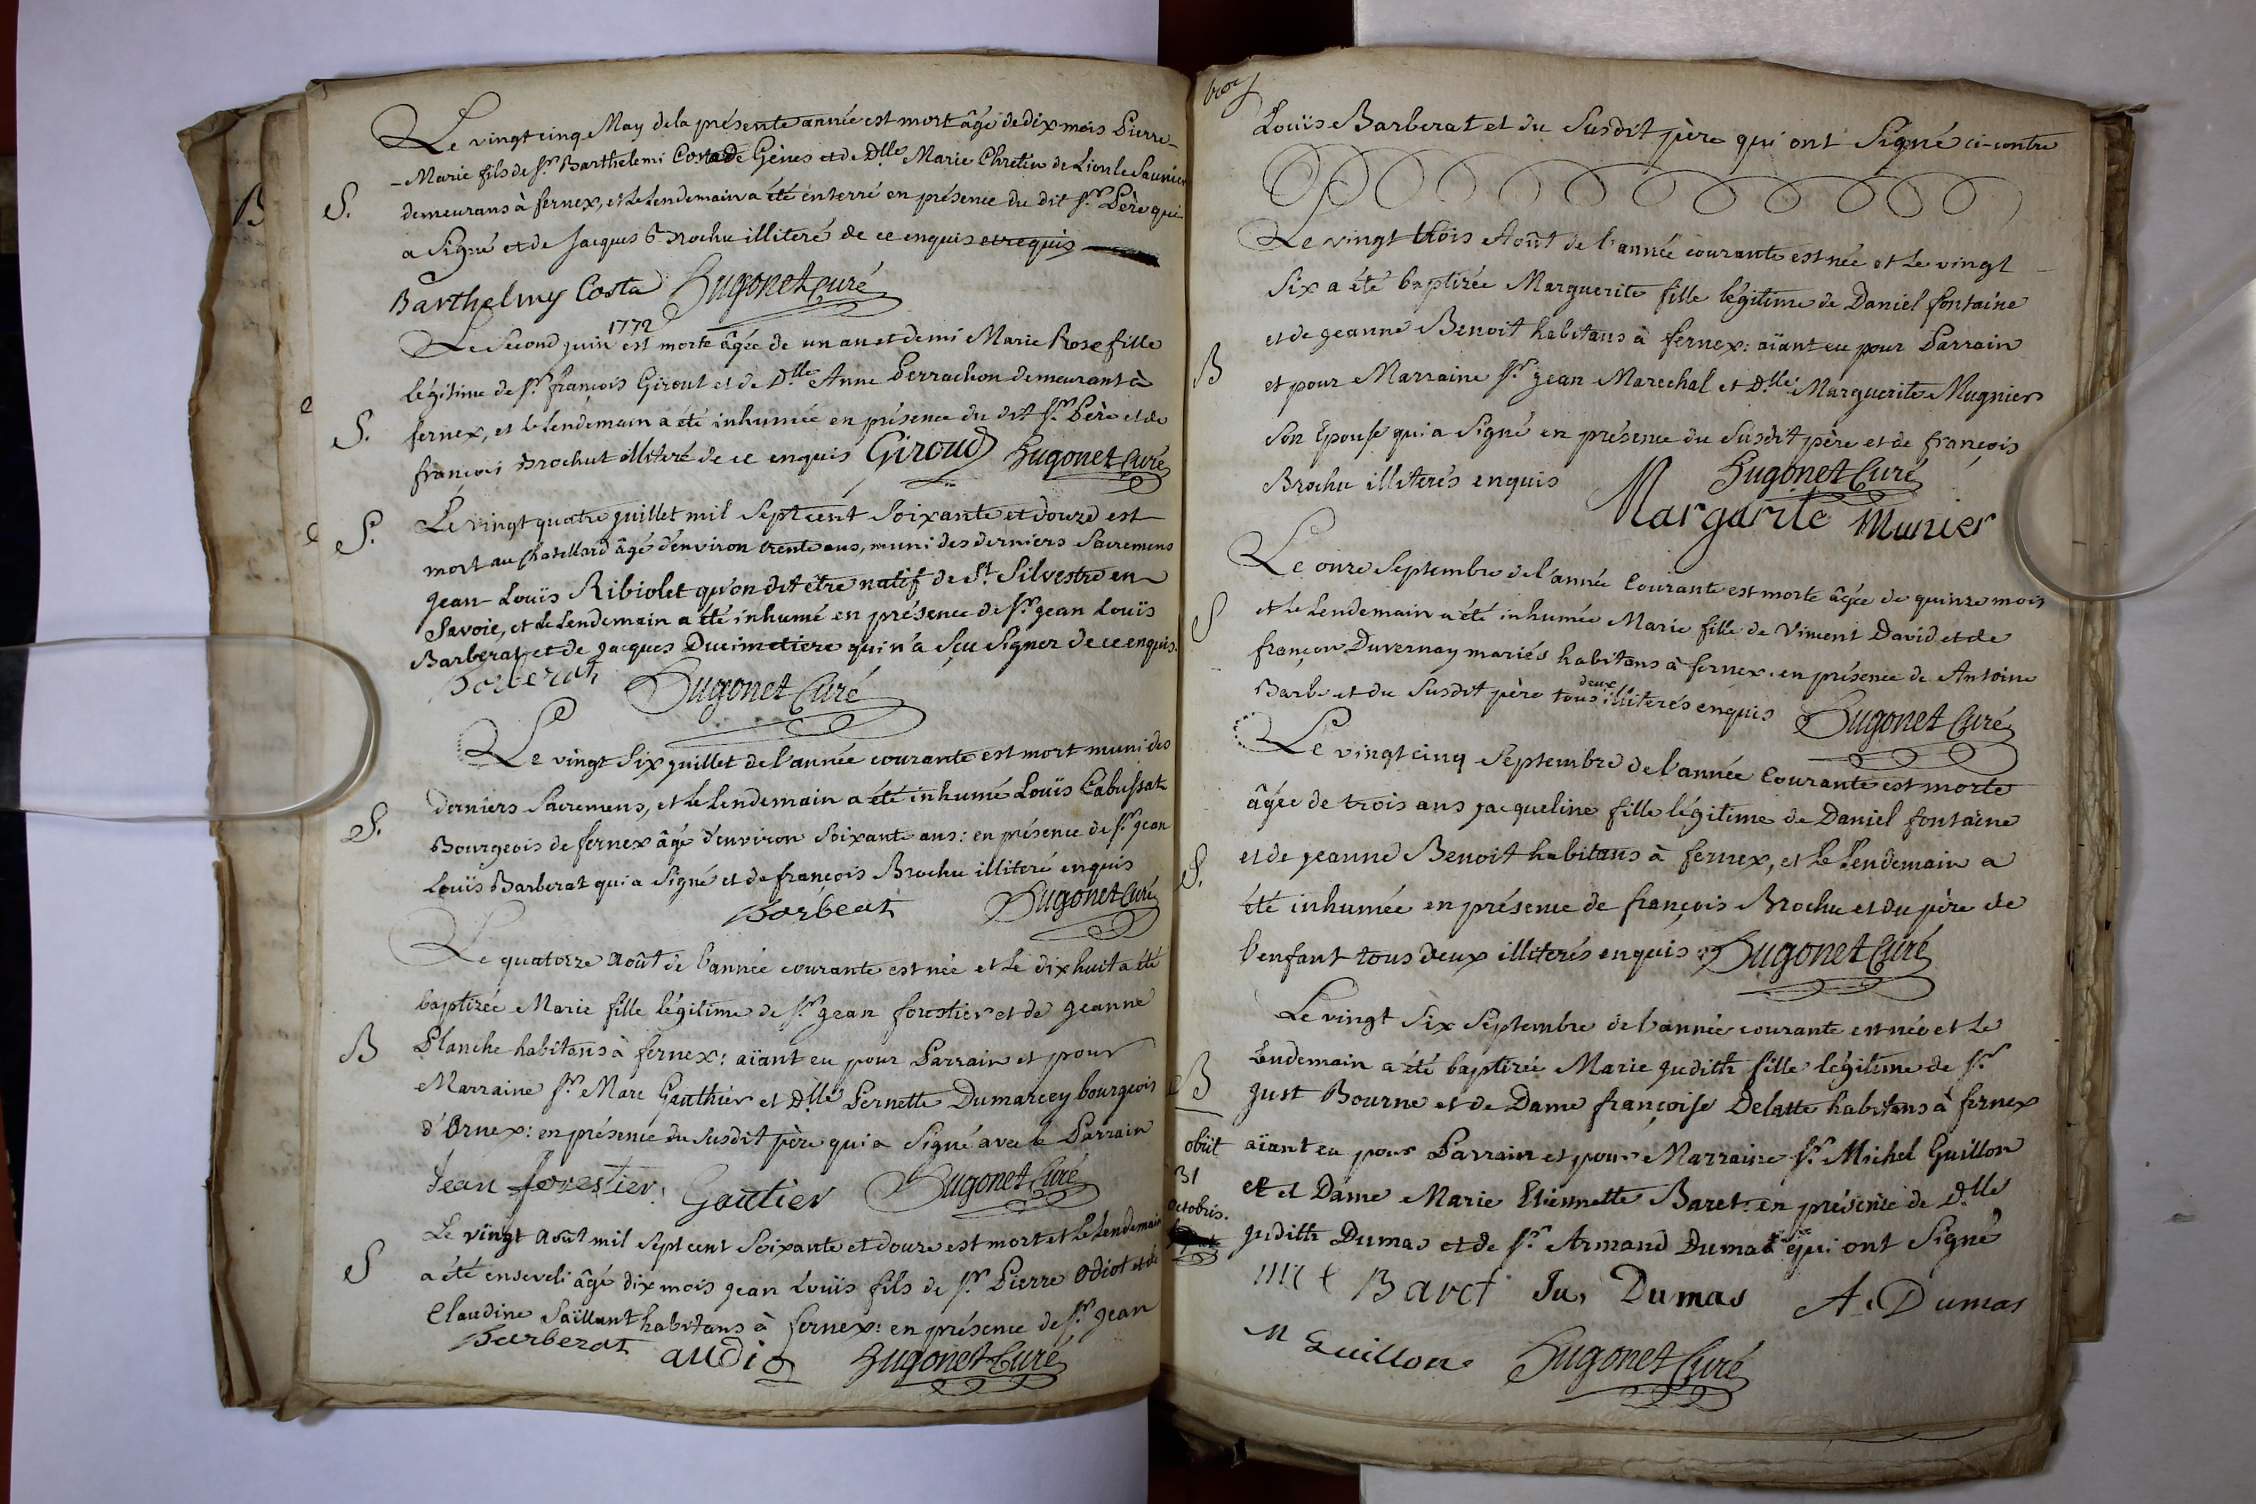 Le vingt cinq May de la présente année est mort âgé de dix mois Pierre
Marie fils de Sr. Barthelemi Costa de Gènes et de Dlle Marie Chretin de Lion le Saunier
S. demeurans à fernex, et le Lendemain a été enterré en présence du dit Sr. Père qui
a Signé et de Jacques Brochu illiteré de ce enquis et requis
Barthelmy Costa Hugonet Curé
1772
Le Second juin est morte âgée de un an et demi Marie Rose fille
légitime de Sr. françois Girout et de Dlle Anne Perrachon demeurant à
S. fernex, et le lendemain a été inhumée en présence du dit Sr. Père et de
françois Brochut illiteré de ce enquis Giroud Hugonet Curé
S. Le vingt quatre juillet mil Sept cent Soixante et douze est
mort au Chatellard âgé d'environ trente ans, muni des derniers Sacremens
jean Louïs Ribiolet qu'on dit être natif de St. Silvestre en
Savoie, et le Lendemain a été inhumé en présence de Sr. jean Louïs
Barberat et de jacques Ducimetiere qui n'a Sçu Signer de ce enquis.
Barberat Hugonet Curé
Le vingt Six juillet de l'année courante est mort muni des
derniers Sacremens, et le Lendemain a été inhumé Louïs Cabussat
S. Bourgeois de fernex âgé d'environ Soixante ans: en présence de Sr. jean
Louïs Barberat qui a Signé et de françois Brochu illiteré enquis
Barberat Hugonet Curé
Le quatorze Août de l'année courante est née et le dix huit a été
baptizée Marie fille légitime de Sr. jean forestier et de jeanne
B Planche habitans à fernex: aïant eu pour Parrain et pour
Marraine Sr. Marc Gauthier et Dlle Pernette Dumarcey bourgeois
d'Ornex: en présence du Susdit père qui a Signé avec le Parrain
Jean forestier. Gautier Hugonet Curé
Le vingt Août mil Sept cent Soixante et douze est mort et le lendemain
S a été enseveli âgé dix mois jean Louïs fils de Sr. Pierre Odiot et de
Claudine Saillant habitans à fernex: en présence de Sr. jean
Barberat audio Hugonet Curé
Louïs Barberat et du Susdit père qui ont Signé ci-contre
Le vingt trois Août de l'année courante est née et le vingt
Six a été baptizée Marguerite fille légitime de Daniel fontaine
et de jeanne Benoit habitans à fernex: aïant eu pour Parrain
B et pour Marraine Sr. jean Marechal et Dlle Marguerite Mugnier
Son Epouse qui a Signé en présence du Susdit père et de françois
Brochu illiterés enquis Hugonet Curé
Margarite Munier
Le onze Septembre de l'année Courante est morte âgée de quinze mois
S et le Lendemain a été inhumée Marie fille de Vincent David et de
françon Duvernay mariés habitans à fernex: en présence de Antoine
Barbe et du Susdit père tous deux illiterés enquis Hugonet Curé
Le vingt cinq Septembre de l'année Courante est morte
âgée de trois ans jacqueline fille légitime de Daniel fontaine
S. et de jeanne Benoit habitans à fernex, et le Lendemain a
été inhumée en présence de françois Brochu et du père de
l'enfant tous deux illiterés enquis Hugonet Curé
Le vingt Six Septembre de l'année courante est née et Le
B Lendemain a été baptizée Marie judith fille légitime de Sr.
just Bourne et de Dame françoise Delatte habitans à fernex
obiit aïant eu pour Parrain et pour Marraine Sr. Michel Guillon
31 et Dame Marie Etiennette Baret: en présence de Dlle
octobris. judith Dumas et de Sr. Armand Dumas qui ont Signé
Baret Ju, Dumas A. Dumas
M Guillon Hugonet Curé